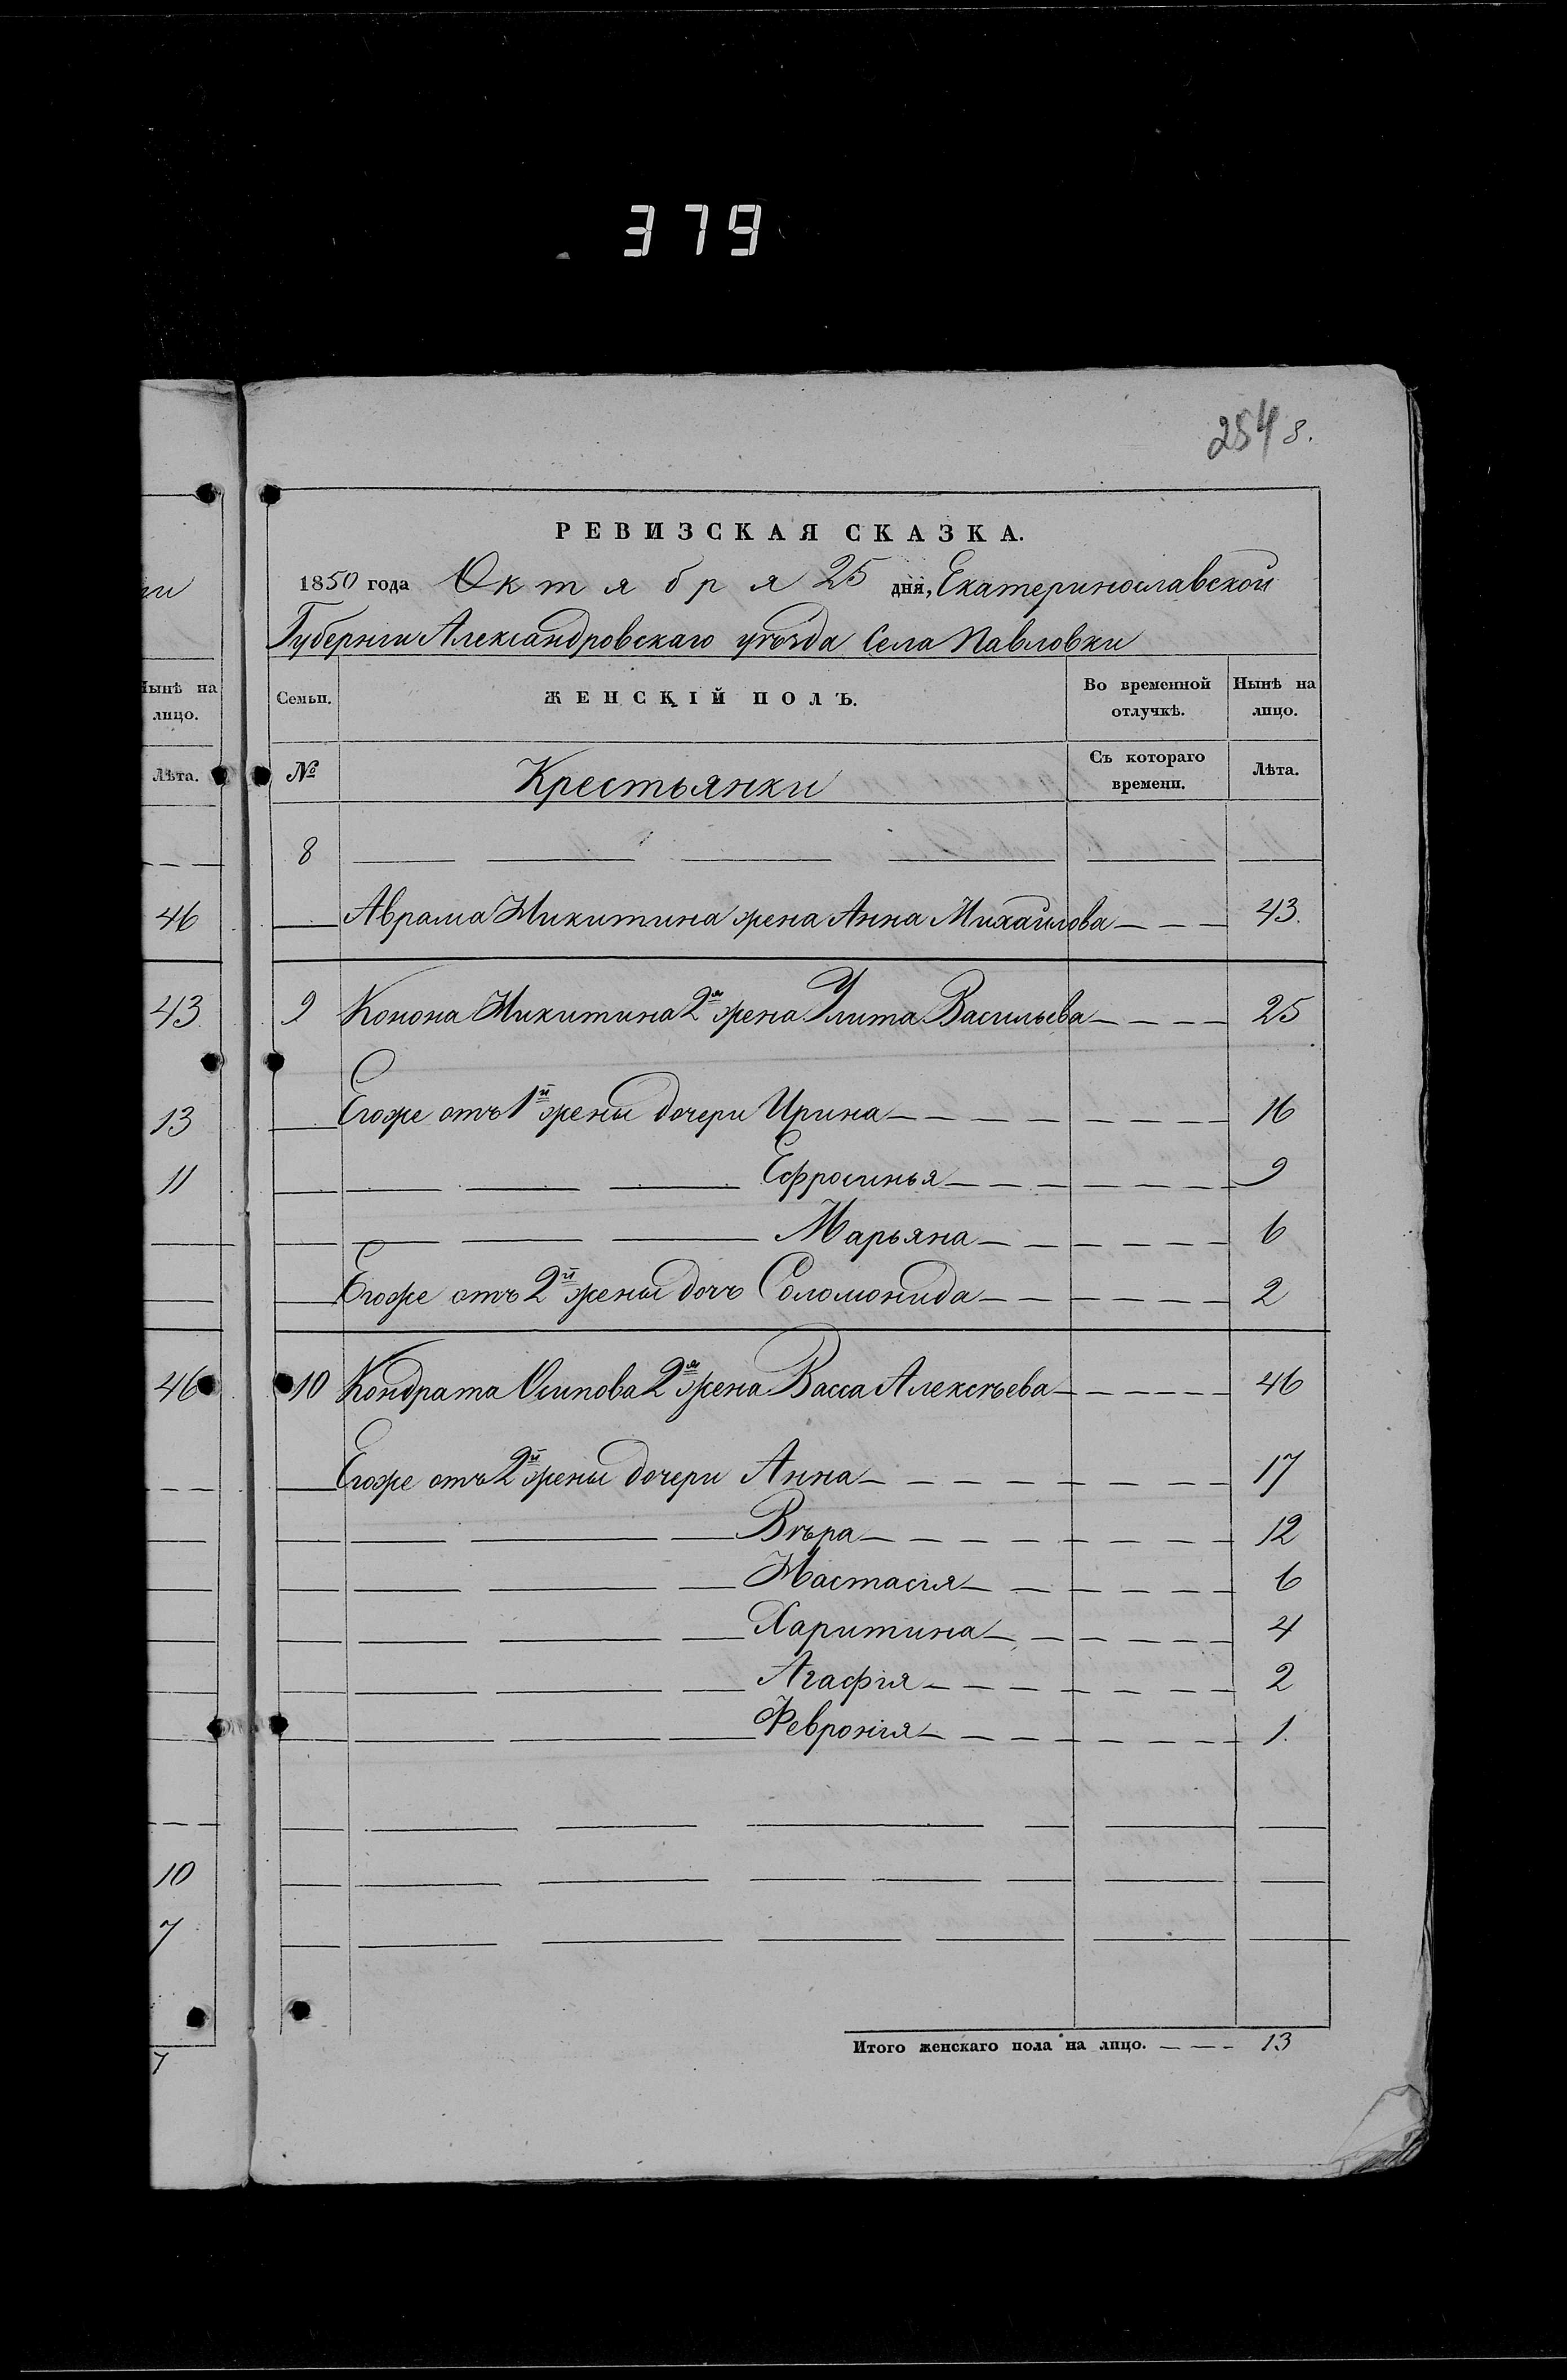 379
254 8.
ни
Нынѣ на
лицо.
Лѣта.
46
43
13
11
46
10
7
7
РЕВИЗСКАЯ СКАЗКА.
1850 года Октября 25 дня, Екатеринославской
Губерніи Александровскаго уѣзда Села Павловки
Семьи. ЖЕНСКІЙ ПОЛЪ. Во временной отлучкѣ. Нынѣ на лицо.
№ Крестьянки Съ котораго времени. Лѣта.
8
Аврама Никитина жена Анна Михайлова 43.
9 Конона Никитина 2я жена Улита Васильева 25
Егоже отъ 1й жены дочери Ирина 16
Ефросинья 9
Марьяна 6
Егоже отъ 2й жены дочъ Соломонида 2
10 Кондрата Осипова 2я жена Васса Алексѣева 46
Егоже отъ 2й жены дочери Анна 17
Вѣра 12
Настасія 6
Харитина 4
Агафія 2
Февронія 1.
Итого женскаго пола на лицо. 13